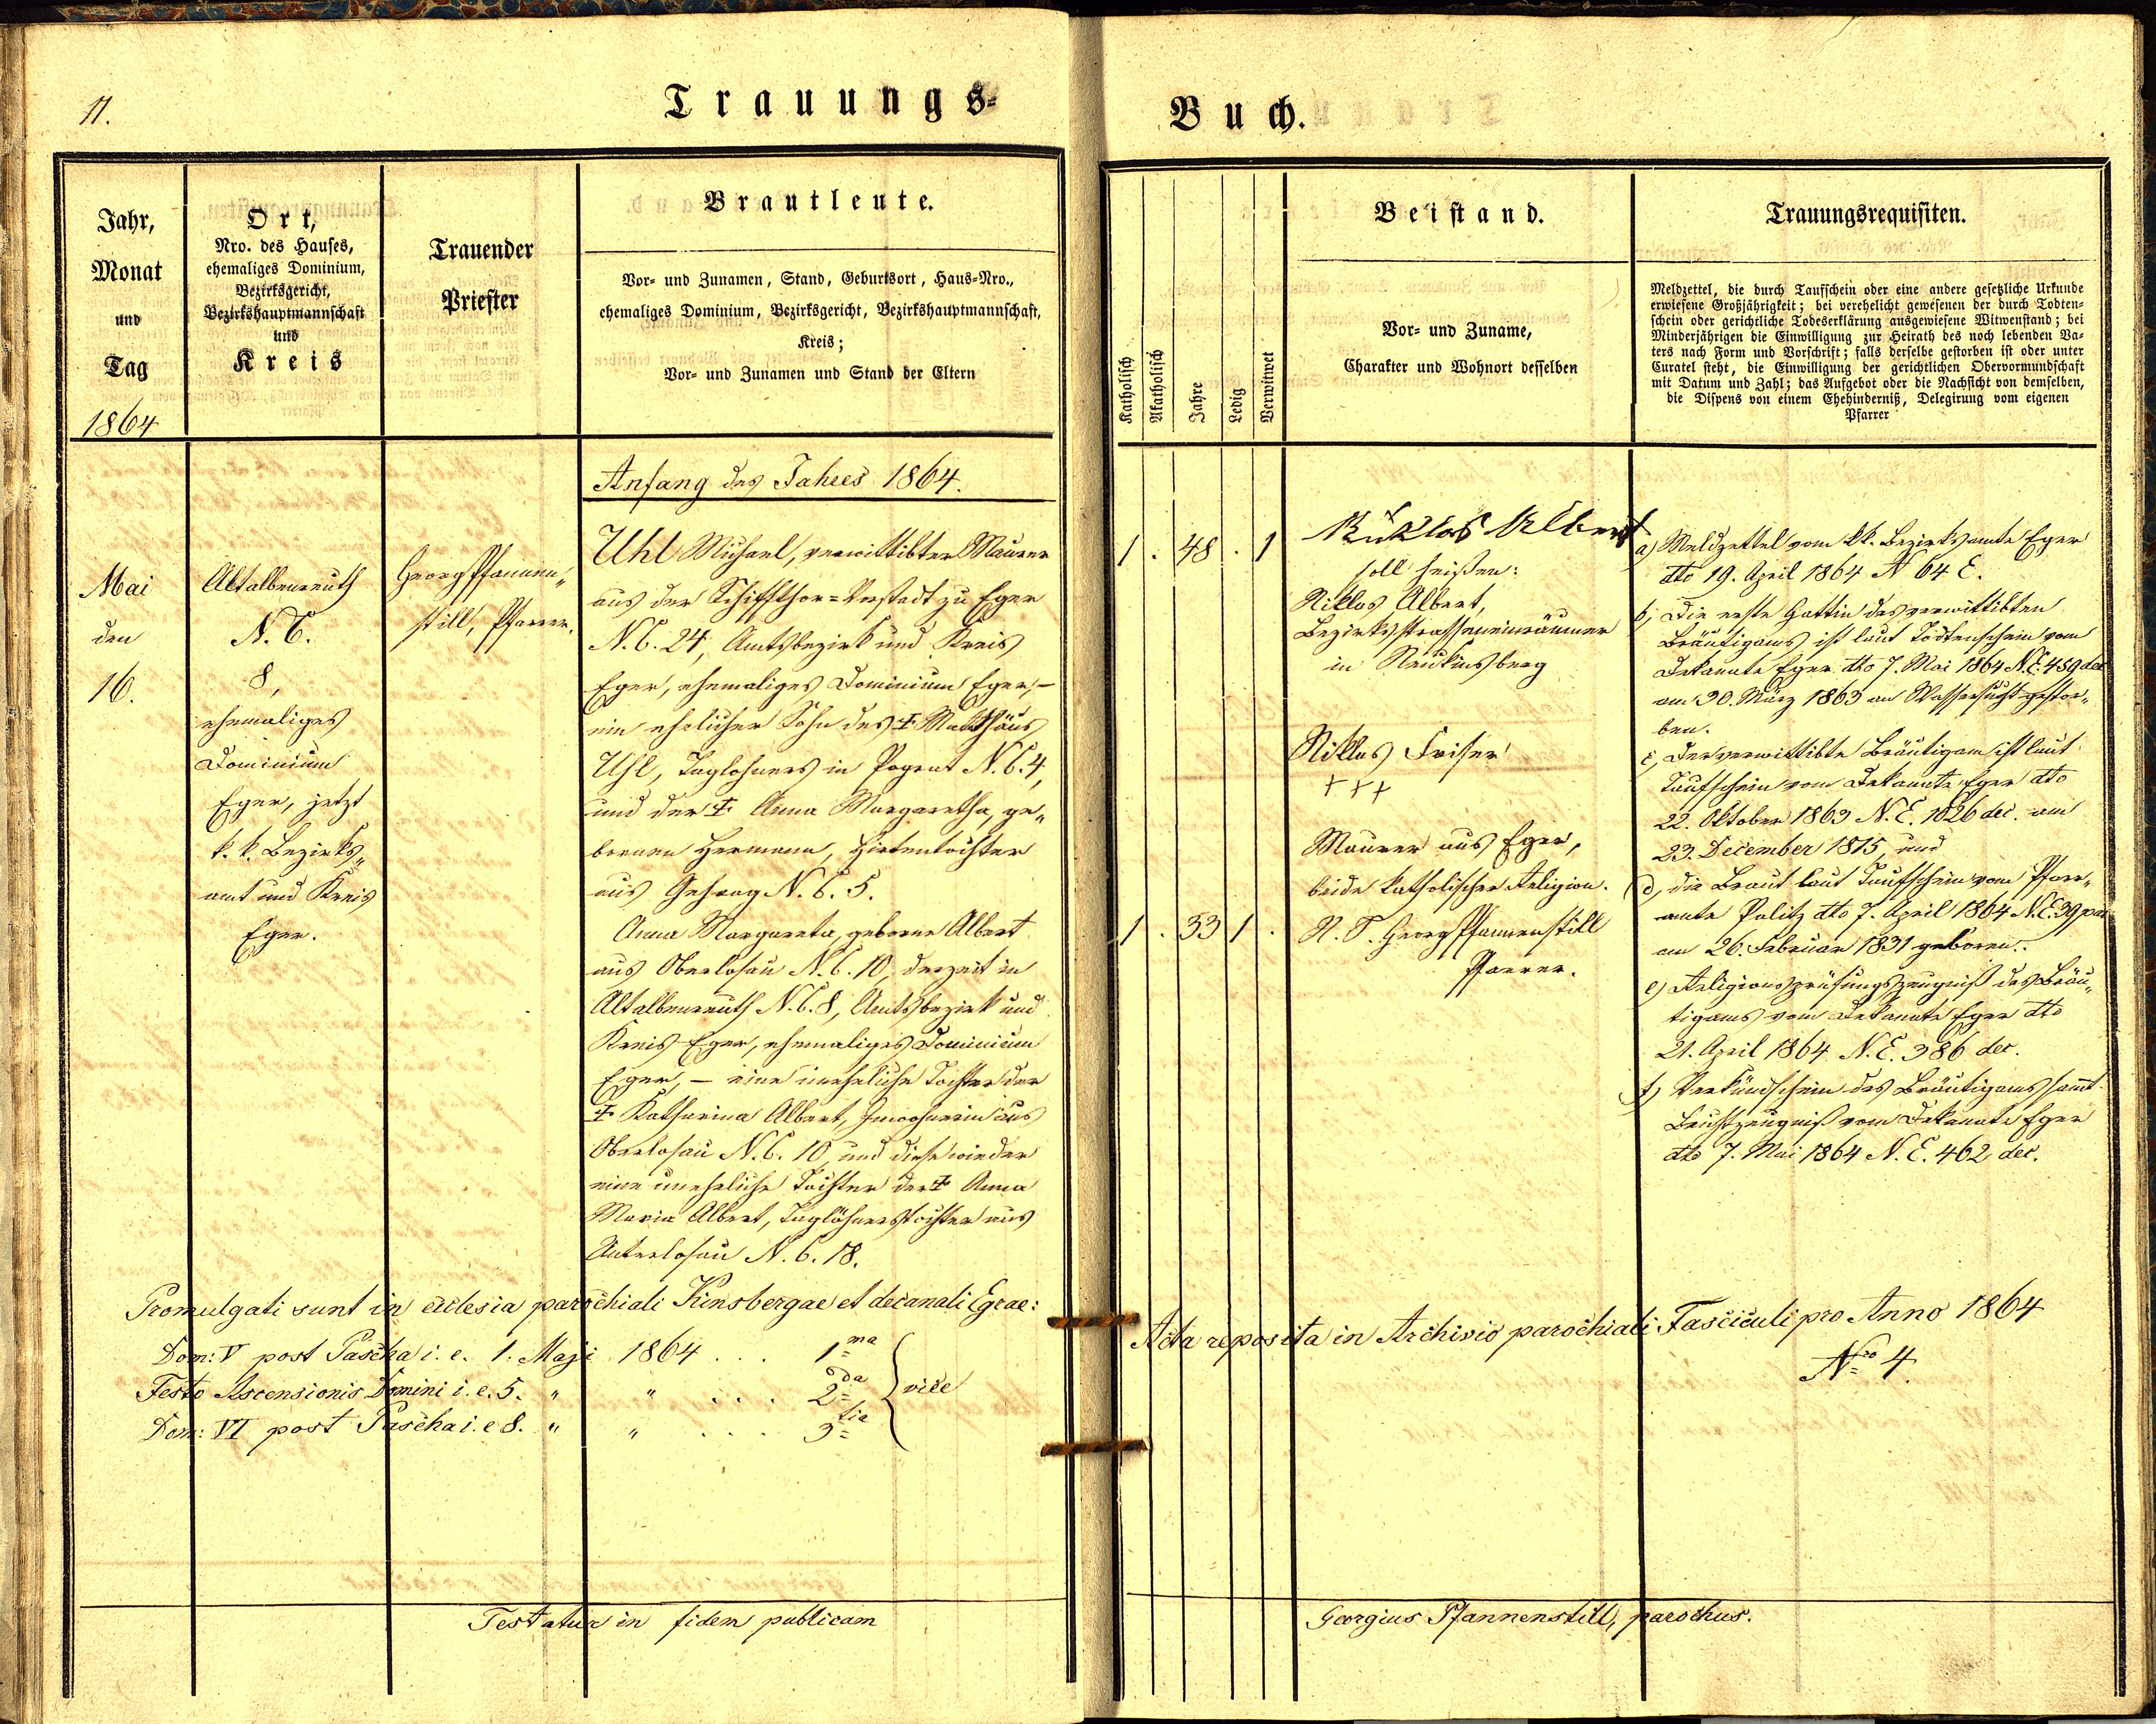 11.
Trauungs-
Buch.
Jahr,
Monat
und
Tag
1864
Ort,
Nro. des Hauses,
ehemaliges Dominium,
Bezirksgericht,
Bezirkshauptmannschaft
und
Kreis
Trauender
Priester
Brautleute.
Vor- und Zunamen, Stand, Geburtsort, Haus-Nro.,
ehemaliges Dominium, Bezirksgericht, Bezirkshauptmannschaft,
Kreis;
Vor- und Zunamen und Stand der Eltern
Katholisch
Akatholisch
Jahre
Ledig
Verwitwet
Beistand.
Vor- und Zuname,
Charakter und Wohnort desselben
Trauungsrequisiten.
Meldzettel, die durch Taufschein oder eine andere gesetzliche Urkunde
erwiesene Großjährigkeit; bei verehelicht gewesenen der durch Todten-
schein oder gerichtliche Todeserklärung ausgewiesene Witwenstand; bei
Minderjährigen die Einwilligung zur Heirath des noch lebenden Va-
ters nach Form und Vorschrift; falls derselbe gestorben ist oder unter
Curatel steht, die Einwilligung der gerichtlichen Obervormundschaft
mit Datum und Zahl; das Aufgebot oder die Nachsicht von demselben,
die Dispens von einem Ehehinderniß, Delegirung vom eigenen
Pfarrer
Mai
den
16.
Altalbenreuth
N. C.
8,
ehemaliges
Dominium
Eger, jetzt
k. k. Bezirks„
amt und Kreis
Eger.
Georg Pfannen„
still, Pfarrer.
Anfang des Jahres 1864.
Uhl Michael, verwittibter Maurer
aus der Schiffthor=Vorstadt zu Eger
N. C. 24, Amtsbezirk und Kreis
Eger, ehemaliges Dominium Eger, –
ein ehelicher Sohn des ‡ Matthäus
Uhl, Taglohners in Pograt N. C. 4,
und der ‡ Anna Margaretha, ge„
bornen Hermann, Hirtentochter
aus Gehaag N. C. 5.
Anna Margareta, geborne Albert
aus Oberlosau N. C. 10, derzeit in
Altalbenreuth N. C. 8, Amtsbezirk und
Kreis Eger, ehemaliges Dominium
Eger, – eine uneheliche Tochter der
‡ Katharina Albert, Inwohnerin aus
Oberlosau N. C. 10 und diese wieder
eine uneheliche Tochter der ‡ Anna
Maria Albert, Taglöhnerstochter aus
Unterlosau N. C. 18.
Promulgati sunt in ecclesia parochiali Kinsbergae et decanali Egrae:
Dom: V post Pascha i. e. 1. Maji 1864 . . . 1ma
Festo Ascensionis Domini i. e. 5. " " . . . . 2da } vice
Dom: VI post Pascha i. e 8. " " . . . . 3tia
Testatur in fidem publicam
1 . 48 . 1
1 . 33 1 .
Niklas Albert
soll heißen:
Niklas Albert,
Bezirksstrasseneinräumer
in Neukinsberg
Niklas
+++
Maurer aus Eger,
beide katholischer Religion.
N. T. Georg Pfannenstill
Pfarrer.
a) Meldzettel vom kk. Bezirksamte Eger
dto 19. April 1864 N 64 E.
b, Die erste Gattin des verwittibten
Bräutigams ist laut Todtenschein vom
Dekanate Eger dto 7. Mai 1864 N. E. 459 dec
am 30. März 1863 an Wassersucht gestor„
ben.
c, Der verwittibte Bräutigam ist laut
Taufschein vom Dekanate Eger dto
22. Oktober 1863 N. E. 1026 dec. am
23. December 1815, und
d, die Braut laut Taufschein vom Pfarr„
amte Palitz dto 7. April 1864 N. E. 39 par
am 26. Februar 1831 geboren.
e) Religionsprüfungszeugniß des Bräu„
tigams vom Dekanate Eger dto
21. April 1864 N. E. 386 dec.
f) Verkündschein des Bräutigams sammt
Beichtzeugniß vom Dekanate Eger
dto 7. Mai 1864 N. E. 462 dec.
Acta reposita in Archivio parochiali Fasciculi pro Anno 1864
Nro 4.
Georgius Pfannenstill, parochus.